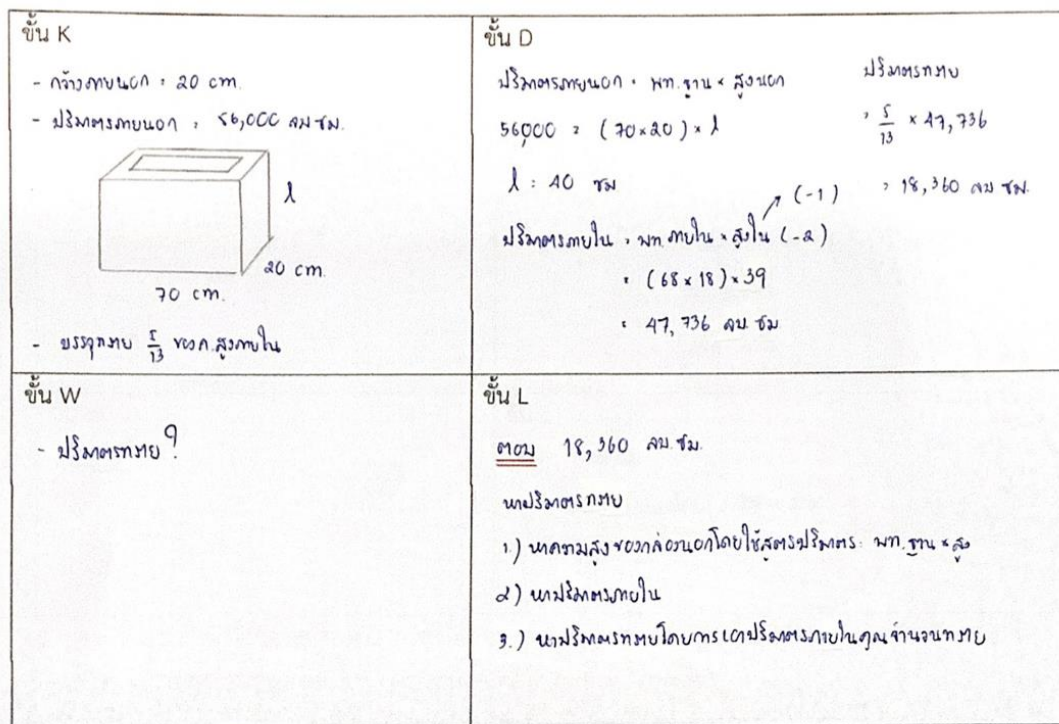 ขั้น K
- กว้างภายนอก = 20 cm.
- ปริมาตรภายนอก = 56,000 ลบ ซม.
l
20 cm.
70 cm.
- บรรจุทราย 5/13 ของค.สูงภายใน
ขั้น D
ปริมาตรภายนอก = พท.ฐาน × สูงนอก
56,000 = (70×20) × l
l = 40 ซม
(-1)
ปริมาตรภายใน = พท.ภายใน × สูงใน (-2)
= (68 × 18) × 39
= 47,736 ลบ. ซม
ปริมาตรทราย
= 5/13 × 47,736
= 18,360 ลบ ซม.
ขั้น W
- ปริมาตรทราย ?
ขั้น L
ตอบ 18,360 ลบ. ซม.
หาปริมาตรทราย
1.) หาความสูงของกล่องนอกโดยใช้สูตรปริมาตร = พท. ฐาน × สูง
2) หาปริมาตรภายใน
3.) หาปริมาตรทรายโดยการเอาปริมาตรภายในคูณจำนวนทราย